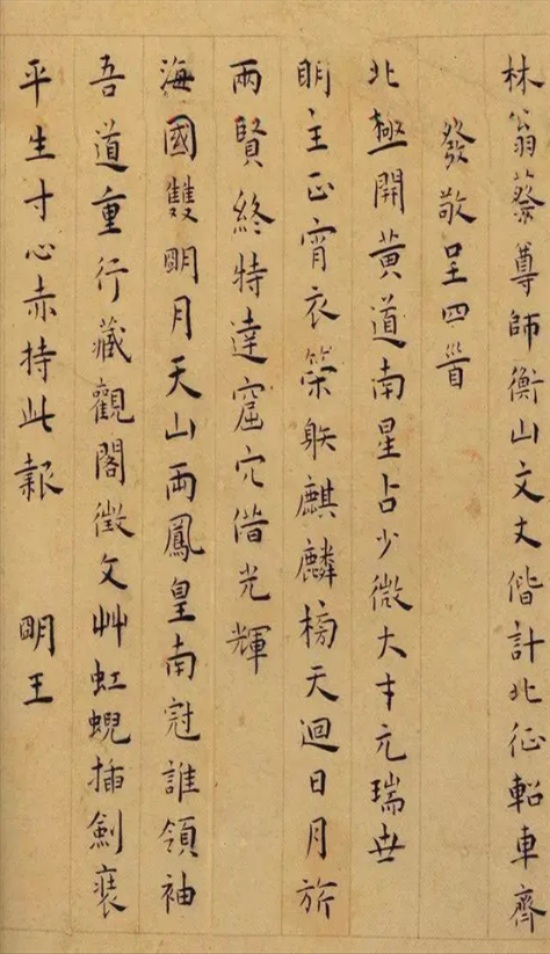 林翁蔡尊師衡山文丈偕計北征軺車齊
發敬呈四首
北極開黃道南星占少微大才元瑞世
明主正宵衣策射麒麟榜天迴日月旂
兩賢終特達窟穴借光輝
海國雙明月天山兩鳳皇南冠誰領袖
吾道重行藏觀閣徵文艸虹蜺插劍裝
平生寸心赤持此報 明王